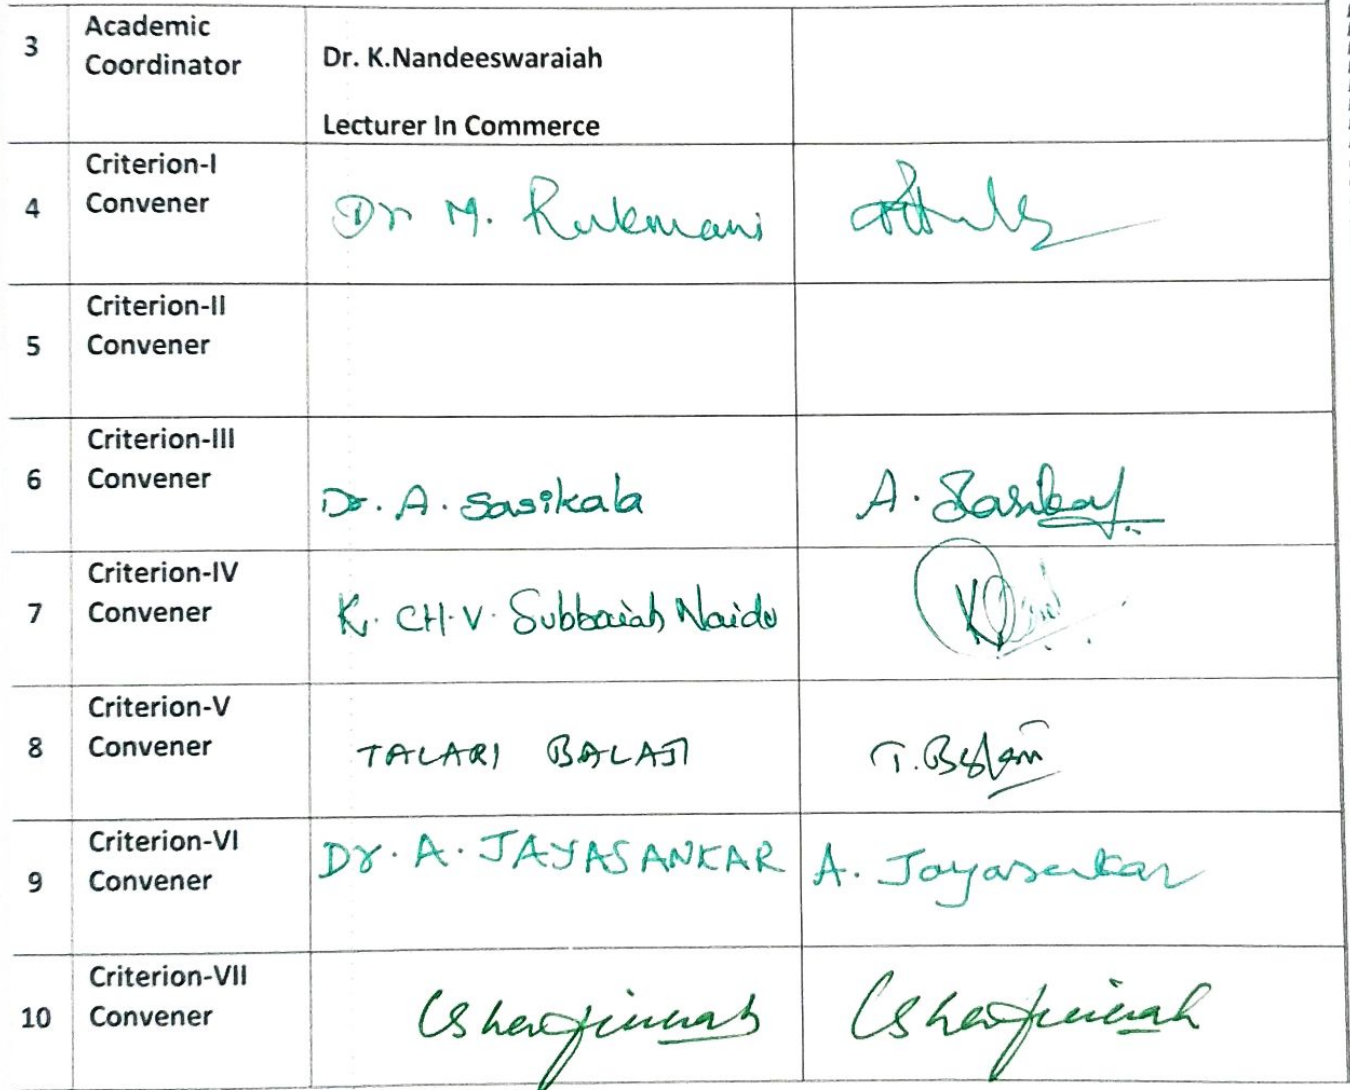 3
Academic
Coordinator
Dr. K.Nandeeswaraiah
Lecturer In Commerce
4
Criterion-I
Convener
Dr M. Rukmani
5
Criterion-II
Convener
6
Criterion-III
Convener
Dr. A. Sasikala
A. Sasikal
7
Criterion-IV
Convener
K. CH.V. Subbaiah Naidu
8
Criterion-V
Convener
TALARI BALAJI
T. Balaji
9
Criterion-VI
Convener
Dr. A. JAYASANKAR
A. Jayasankar
10
Criterion-VII
Convener